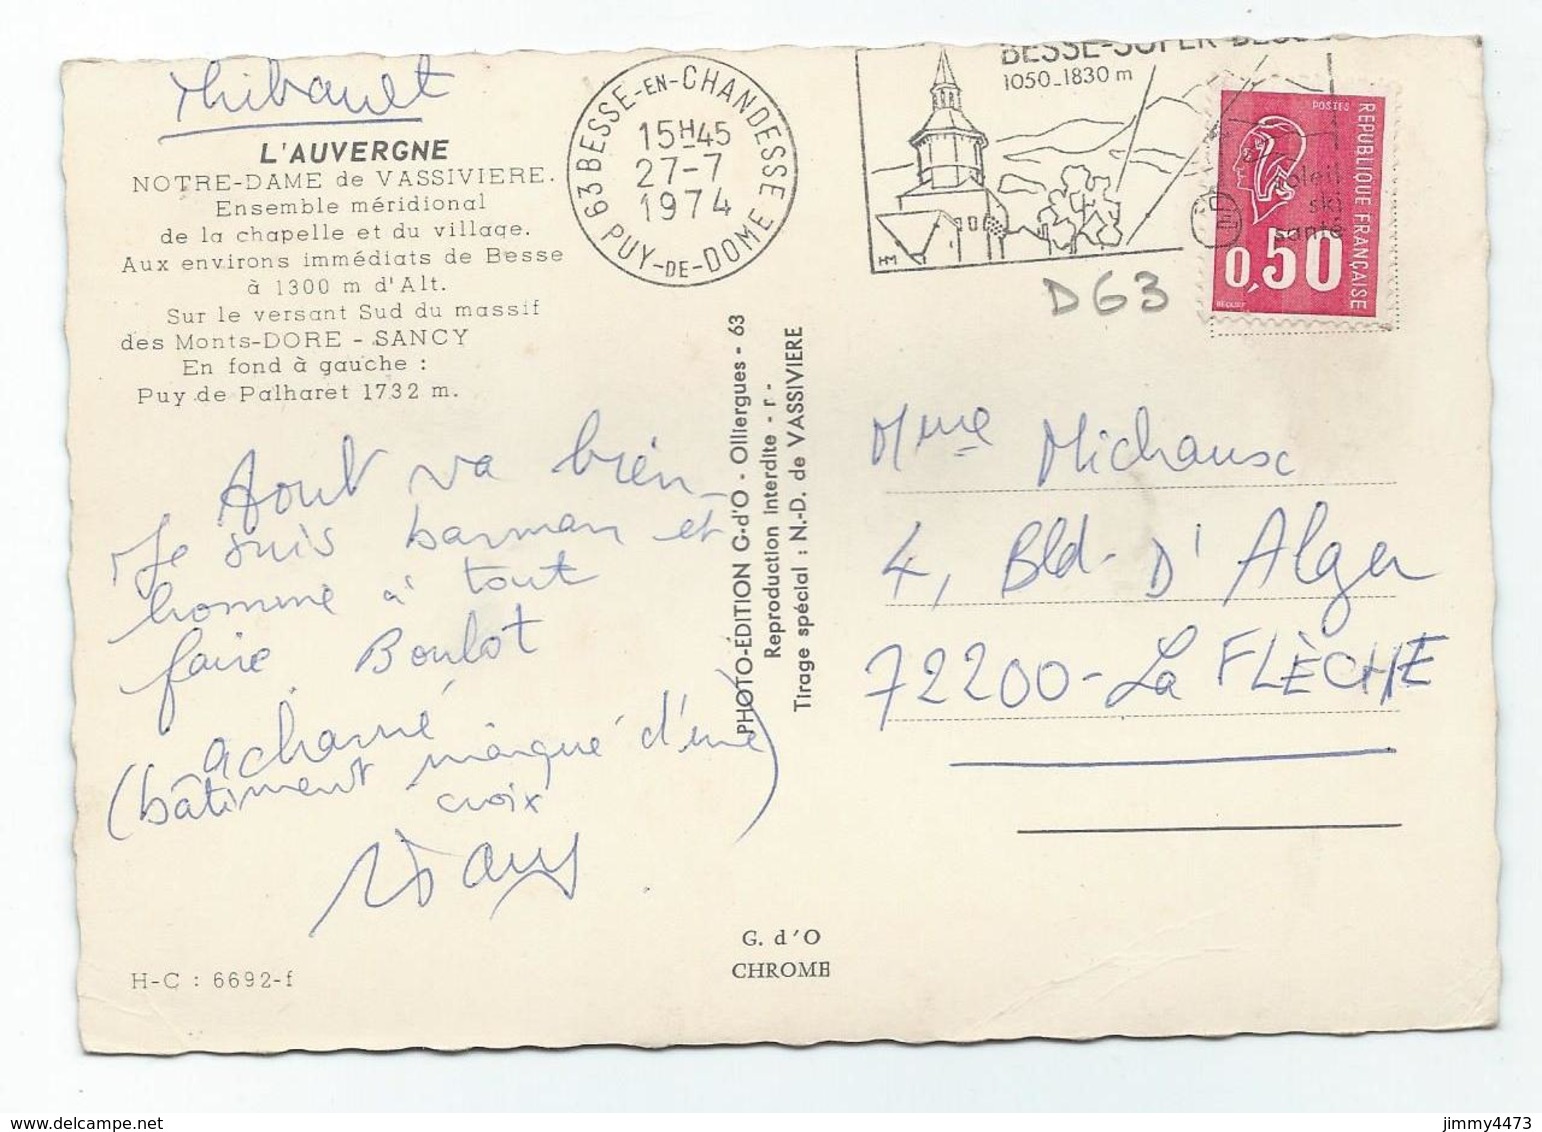 Thibault
L'AUVERGNE
NOTRE-DAME de VASSIVIERE.
Ensemble méridional
de la chapelle et du village.
Aux environs immédiats de Besse
à 1300 m d'Alt.
Sur le versant Sud du massif
des Monts-DORE - SANCY
En fond à gauche :
Puy de Palharet 1732 m.
Tout va bien -
Je suis barman et
homme à tout
faire Boulot
acharné
(bâtiment marqué d'une
croix)
H-C : 6692-f
63 BESSE-EN-CHANDESSE
15H45
27-7
1974
PUY-DE-DOME
BESSE-SUPER-BESSE
1050-1830 m
HM
soleil
ski
santé
POSTES
REPUBLIQUE FRANÇAISE
0,50
BEQUET
D63
PHOTO-ÉDITION G-d'O - Olliergues - 63
Reproduction Interdite - r -
Tirage spécial : N.-D. de VASSIVIERE
Mme Michaux
4, Bld- D'Alger
72200 - La FLÈCHE
G. d'O
CHROME
jimmy4473
www.delcampe.net